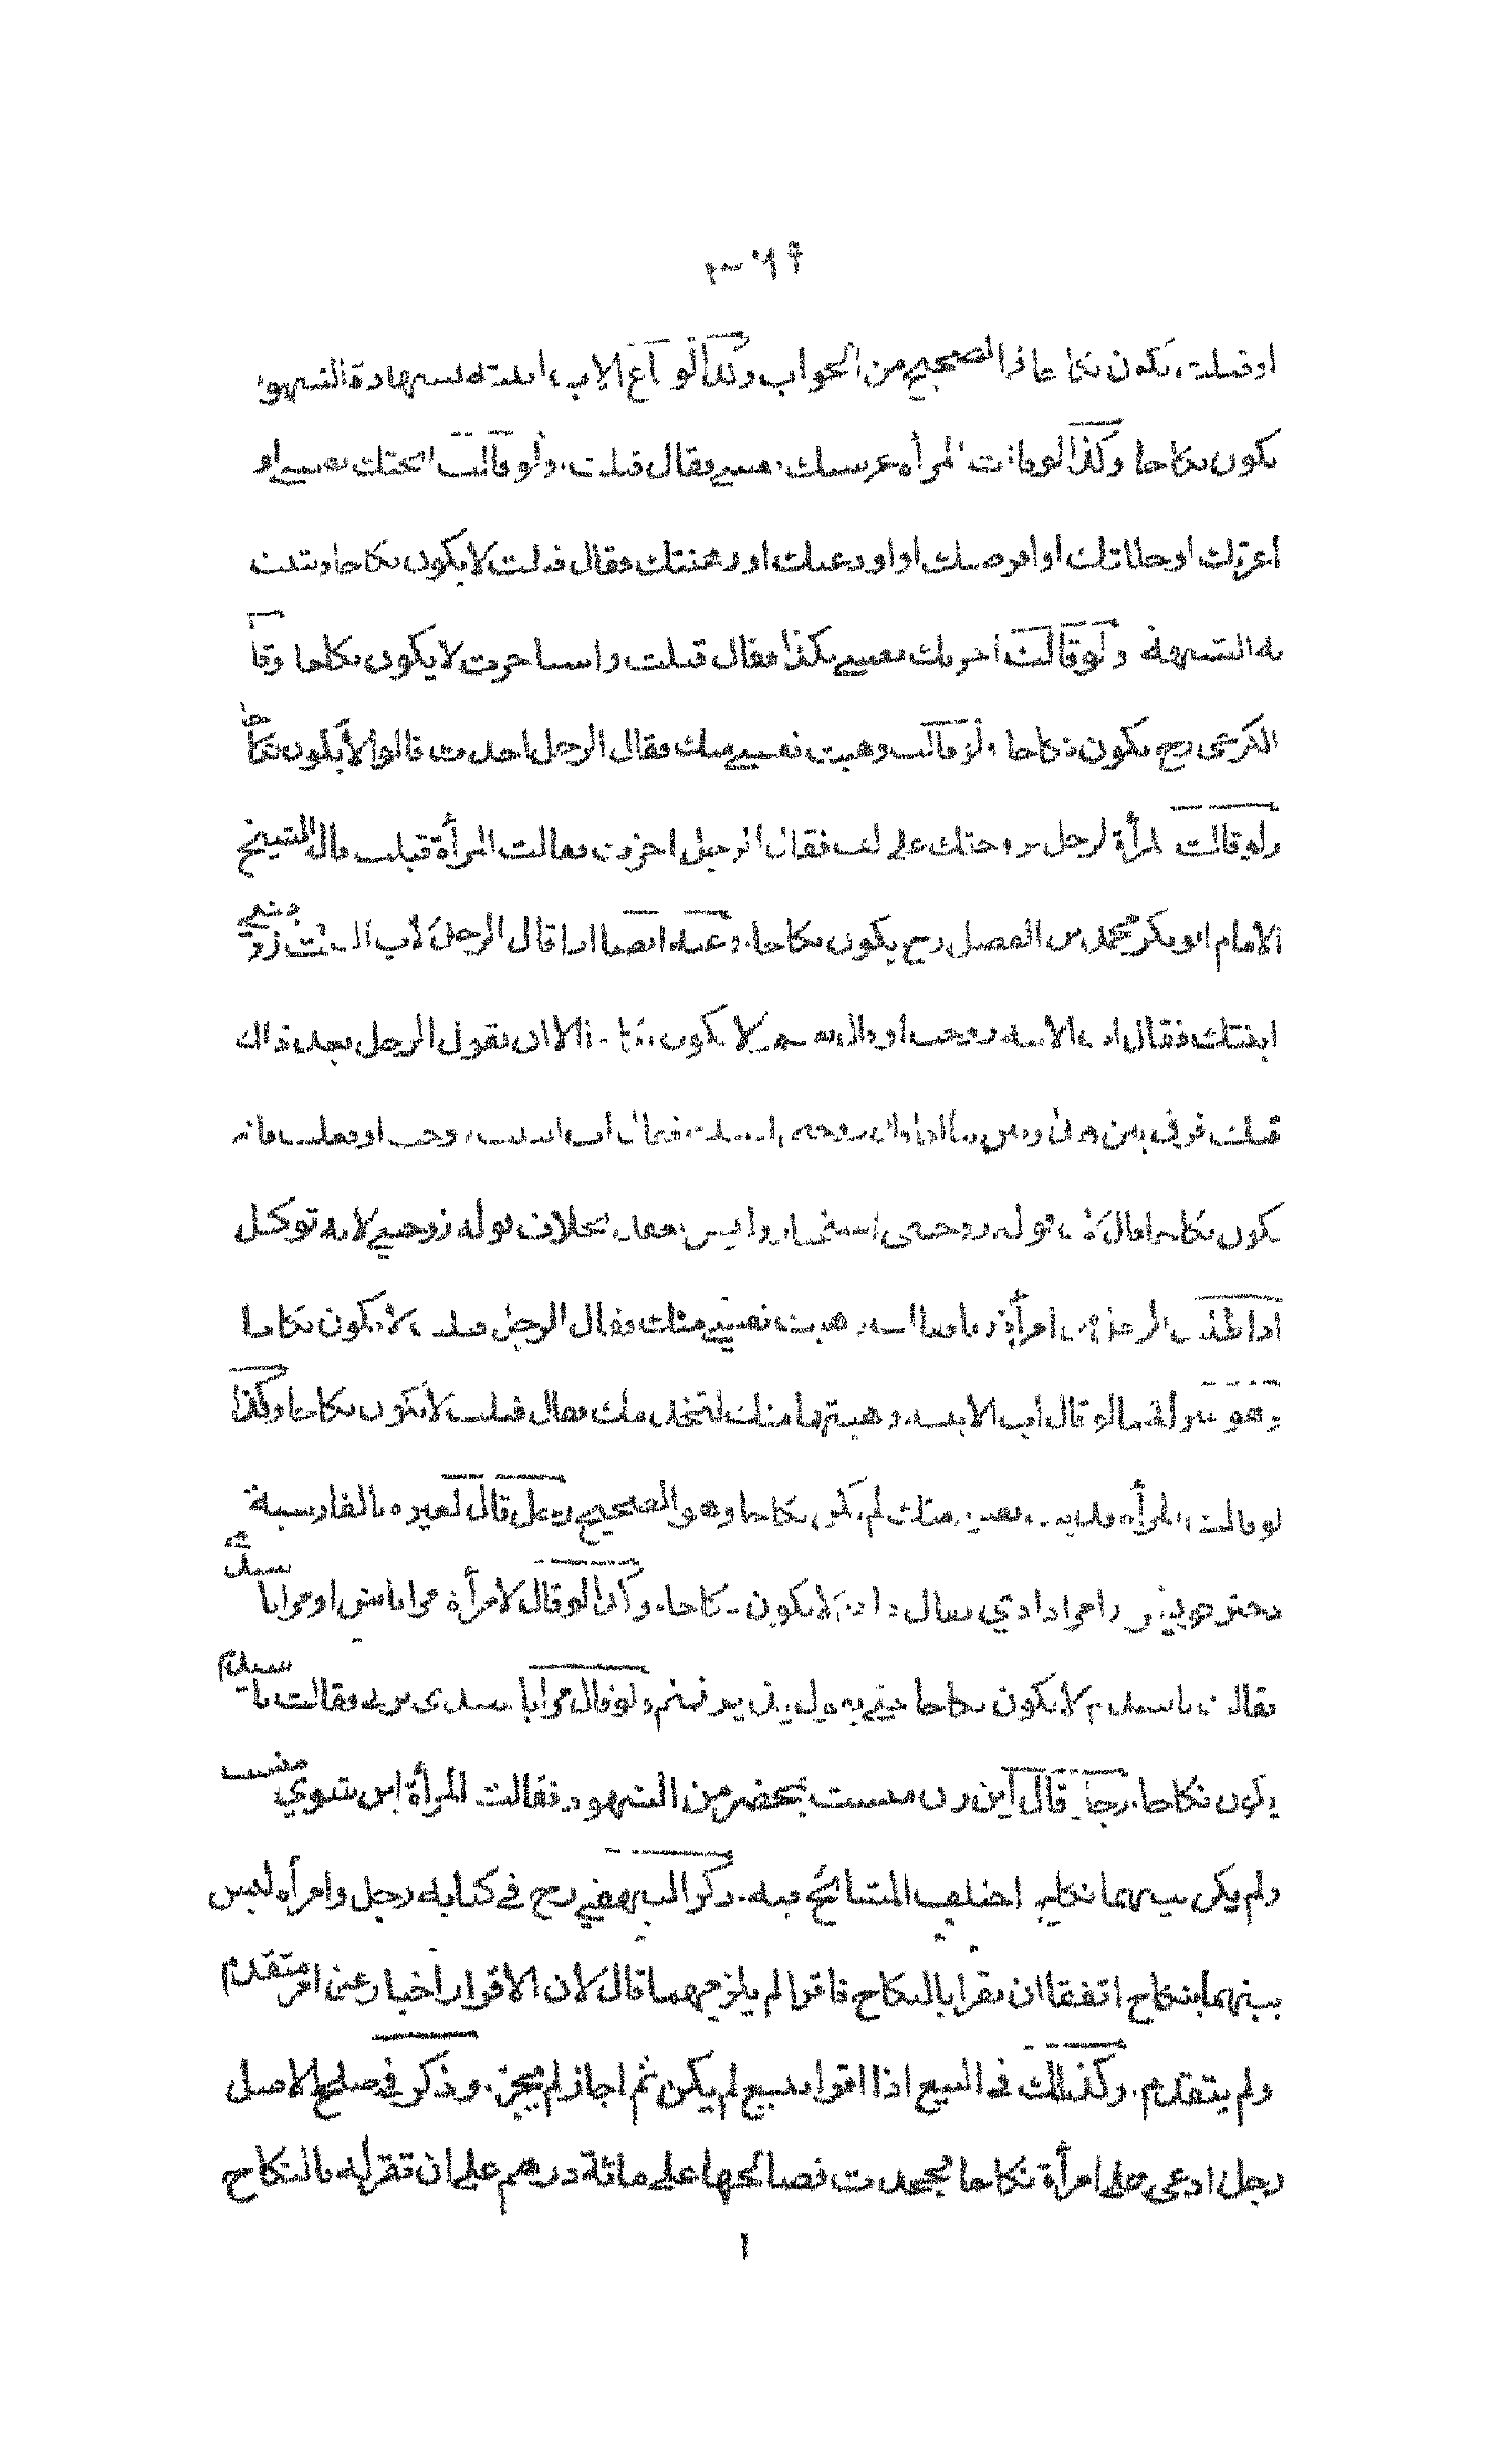 او قبلت يكون نكاحا في الصحيح من الجواب وكذا لو باع الاب ابنته بشهادة الشهود
يكون نكاحا وكذا لو قالت المرأة عرستك نفسي فقال قبلت. ولو قالت ابحتك نفسي او
اعرتك او حللتك او اقرضتك او اودعتك او رهنتك فقال قبلت لا يكون نكاحا و يثبت
به الشبهة ولو قالت اجرتك نفسي بكذا فقال قبلت واستاجرت لا يكون نكاحا وقال
الكرخي رح يكون نكاحا ولو قالت وهبت نفسي منك فقال الرجل اخذت قالوا لا يكون نكاحا
ولو قالت المرأة لرجل زوجتك على الف فقال الرجل اجزت فقالت المرأة قبلت قال الشيخ
الامام ابو بكر محمد بن الفضل رح يكون نكاحا. وعنه ايضا اذا قال الرجل لأب البنت زوجني
ابنتك فقال اب الابنة زوجت او قال نعم لا يكون نكاحا الا ان يقول الرجل بعد ذلك
قبلت فرق بين هذا وبين ما اذا قال زوجت
يكون نكاحا قال لان قوله زوجتني استخبار وليس بعقد بخلاف قوله زوجني لانه توكيل
اذا طلب الرجل من امرأة زنا فقالت وهبت نفسي منك فقال الرجل قبلت لا يكون نكاحا
وهو بمنزلة ما لو قال اب الابنة وهبتها منك لتخدمك فقال قبلت لا يكون نكاحا وكذا
لو قالت المرأة نفسي منك لم يكن نكاحا وهو الصحيح رجل قال لغيره بالفارسية
دختر خويش را مرا دادي فقال لا يكون نكاحا. وكذا لو قال لامرأة مرا باش او مرا باشيدى
فقالت باشيدم لا يكون نكاحا ولو قال مرا باشيدى بزنى فقالت باشيدم
يكون نكاحا. رجل قال اين زن منست بمحضر من الشهود فقالت المرأة اين شوي منست
ولم يكن بينهما نكاح اختلف المشائخ فيه. ذكر البيهقي رح في كتابه رجل وامرأة ليس
بينهما نكاح اتفقا ان يقرا بالنكاح فاقرا لم يلزمهما قال لان الاقرار اخبار عن امر متقدم
ولم يتقدم. وكذلك في البيع اذا اقرا ببيع لم يكن ثم اجاز لم يجز. وذكر في صلح الاصل
رجل ادعى على امرأة نكاحا فجحدت فصالحها على مائة درهم على ان تقر له بالنكاح